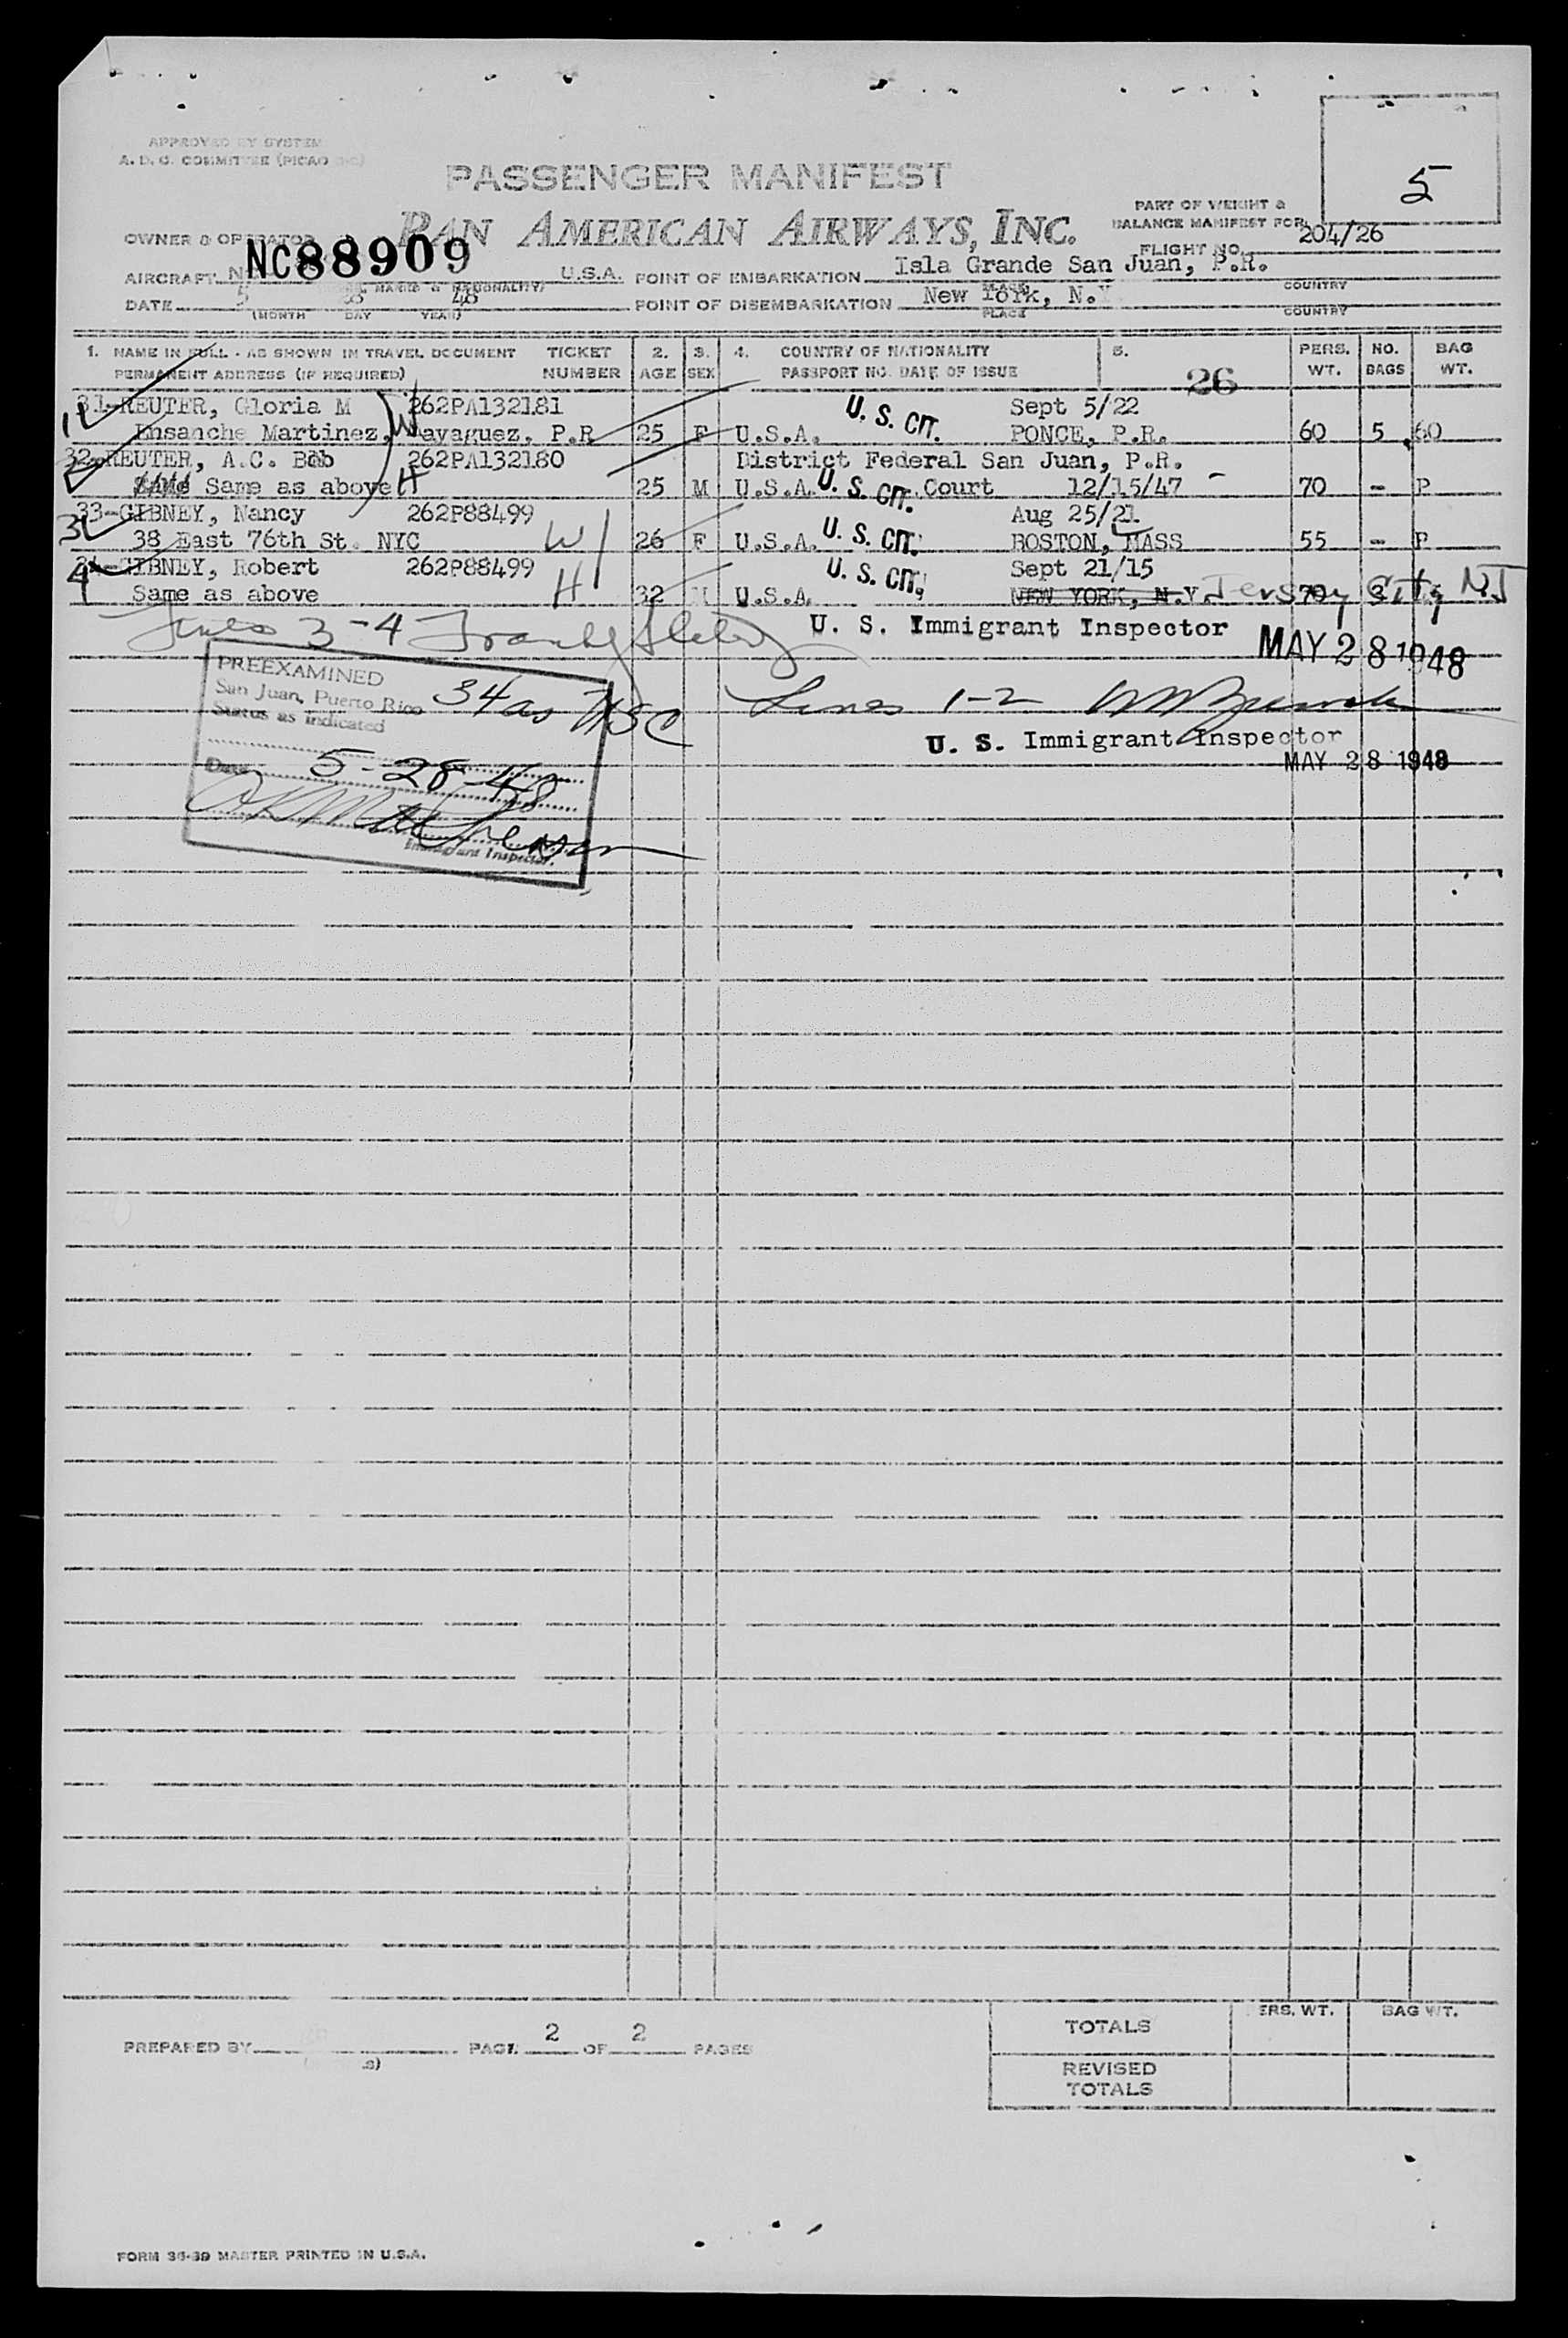 APPROVED BY SYSTEM
A. D. C. COMMITTEE (PICAO
5
PASSENGER MANIFEST
PART OF WEIGHT &
BALANCE MANIFEST FOR
OWNER & OPERATOR PAN AMERICAN AIRWAYS, INC.
FLIGHT NO. 204/26
AIRCRAFT N NC88909 U.S.A. POINT OF EMBARKATION Isla Grande San Juan, P.R.
MARKS & NATIONALITY) PLACE COUNTRY
DATE 5 28 48 POINT OF DISEMBARKATION New York, N.Y
(MONTH DAY YEAR) PLACE COUNTRY
1. NAME IN FULL - AS SHOWN IN TRAVEL DOCUMENT TICKET 2. 3. 4. COUNTRY OF NATIONALITY 5. PERS. NO. BAG
PERMANENT ADDRESS (IF REQUIRED) NUMBER AGE SEX PASSPORT NO. DATE OF ISSUE 26 WT. BAGS WT.
31-REUTER, Gloria M 262PA132181 U. S. CIT. Sept 5/22
1 Ensanche Martinez, Mayaguez, P.R W 25 F U.S.A. PONCE, P.R. 60 5 60
32-REUTER, A.C. Bob 262PA132180 District Federal San Juan, P.R.
2 Same as above H 25 M U.S.A. U. S. CIT. Court 12/15/47 - 70 - P
33-GIBNEY, Nancy 262P88499 Aug 25/21
3 38 East 76th St. NYC W 26 F U.S.A. U. S. CIT. BOSTON, MASS 55 - P
34-GIBNEY, Robert 262P88499 U. S. CIT. Sept 21/15
4 Same as above H 32 M U.S.A. NEW YORK, N.Y. Jersey City NJ 70 3
Lines 3-4
U. S. Immigrant Inspector MAY 28 1948
PREEXAMINED
San Juan, Puerto Rico 34 as USC
Status as indicated
Lines 1-2
U. S. Immigrant Inspector
MAY 28 1948
Date 5-28-48
Immigrant Inspector.
PREPARED BY PAGE 2 OF 2 PAGES
TOTALS PERS. WT. BAG WT.
REVISED
TOTALS
FORM 36-39 MASTER PRINTED IN U.S.A.